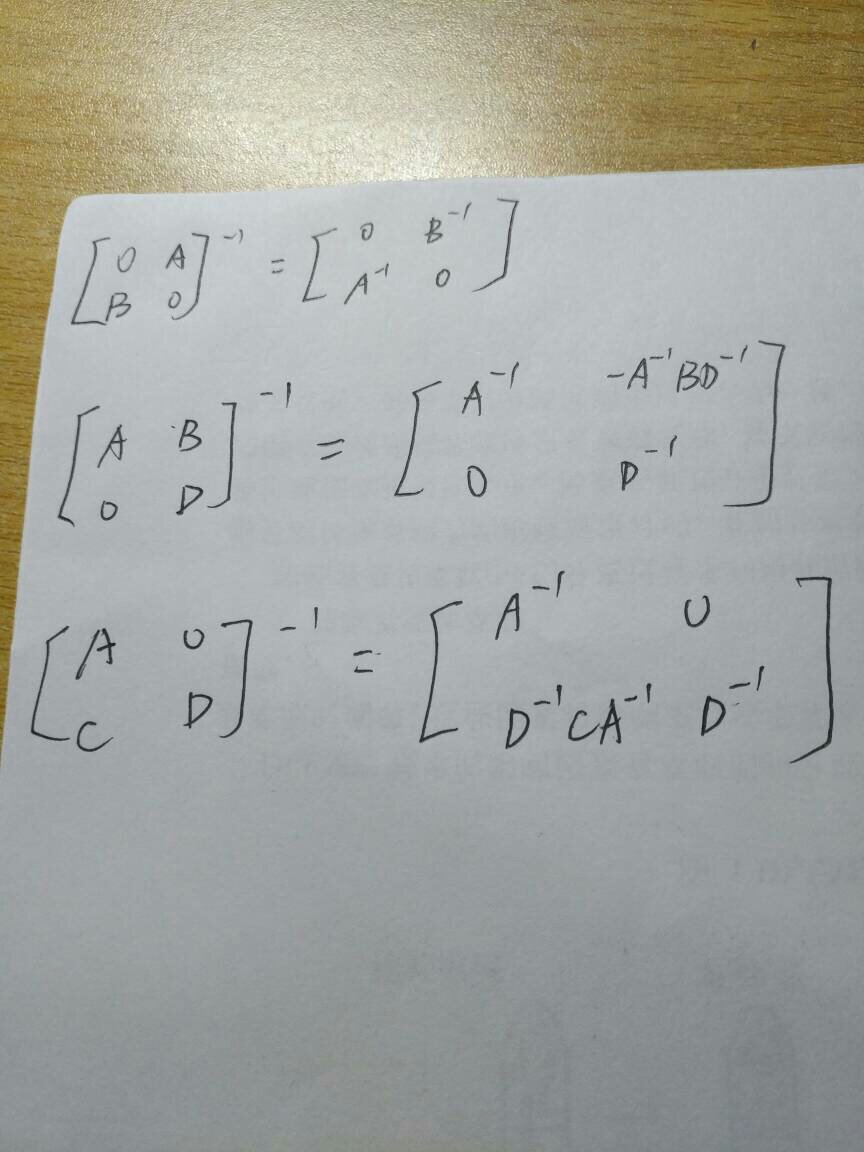 [0 A; B 0]⁻¹ = [0 B⁻¹; A⁻¹ 0]
[A B; 0 D]⁻¹ = [A⁻¹ -A⁻¹BD⁻¹; 0 D⁻¹]
[A 0; C D]⁻¹ = [A⁻¹ 0; D⁻¹CA⁻¹ D⁻¹]